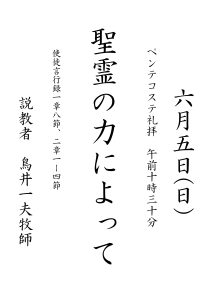 六月五日(日)
ペンテコステ礼拝　午前十時三十分
聖霊の力によって
使徒言行録一章八節、二章一―四節
説教者　鳥井一夫牧師